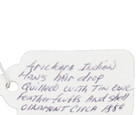 Arickara Indian
Man's hair drop
Quilled with tin cone
Feather fluffs and shell
ornament circa 1880